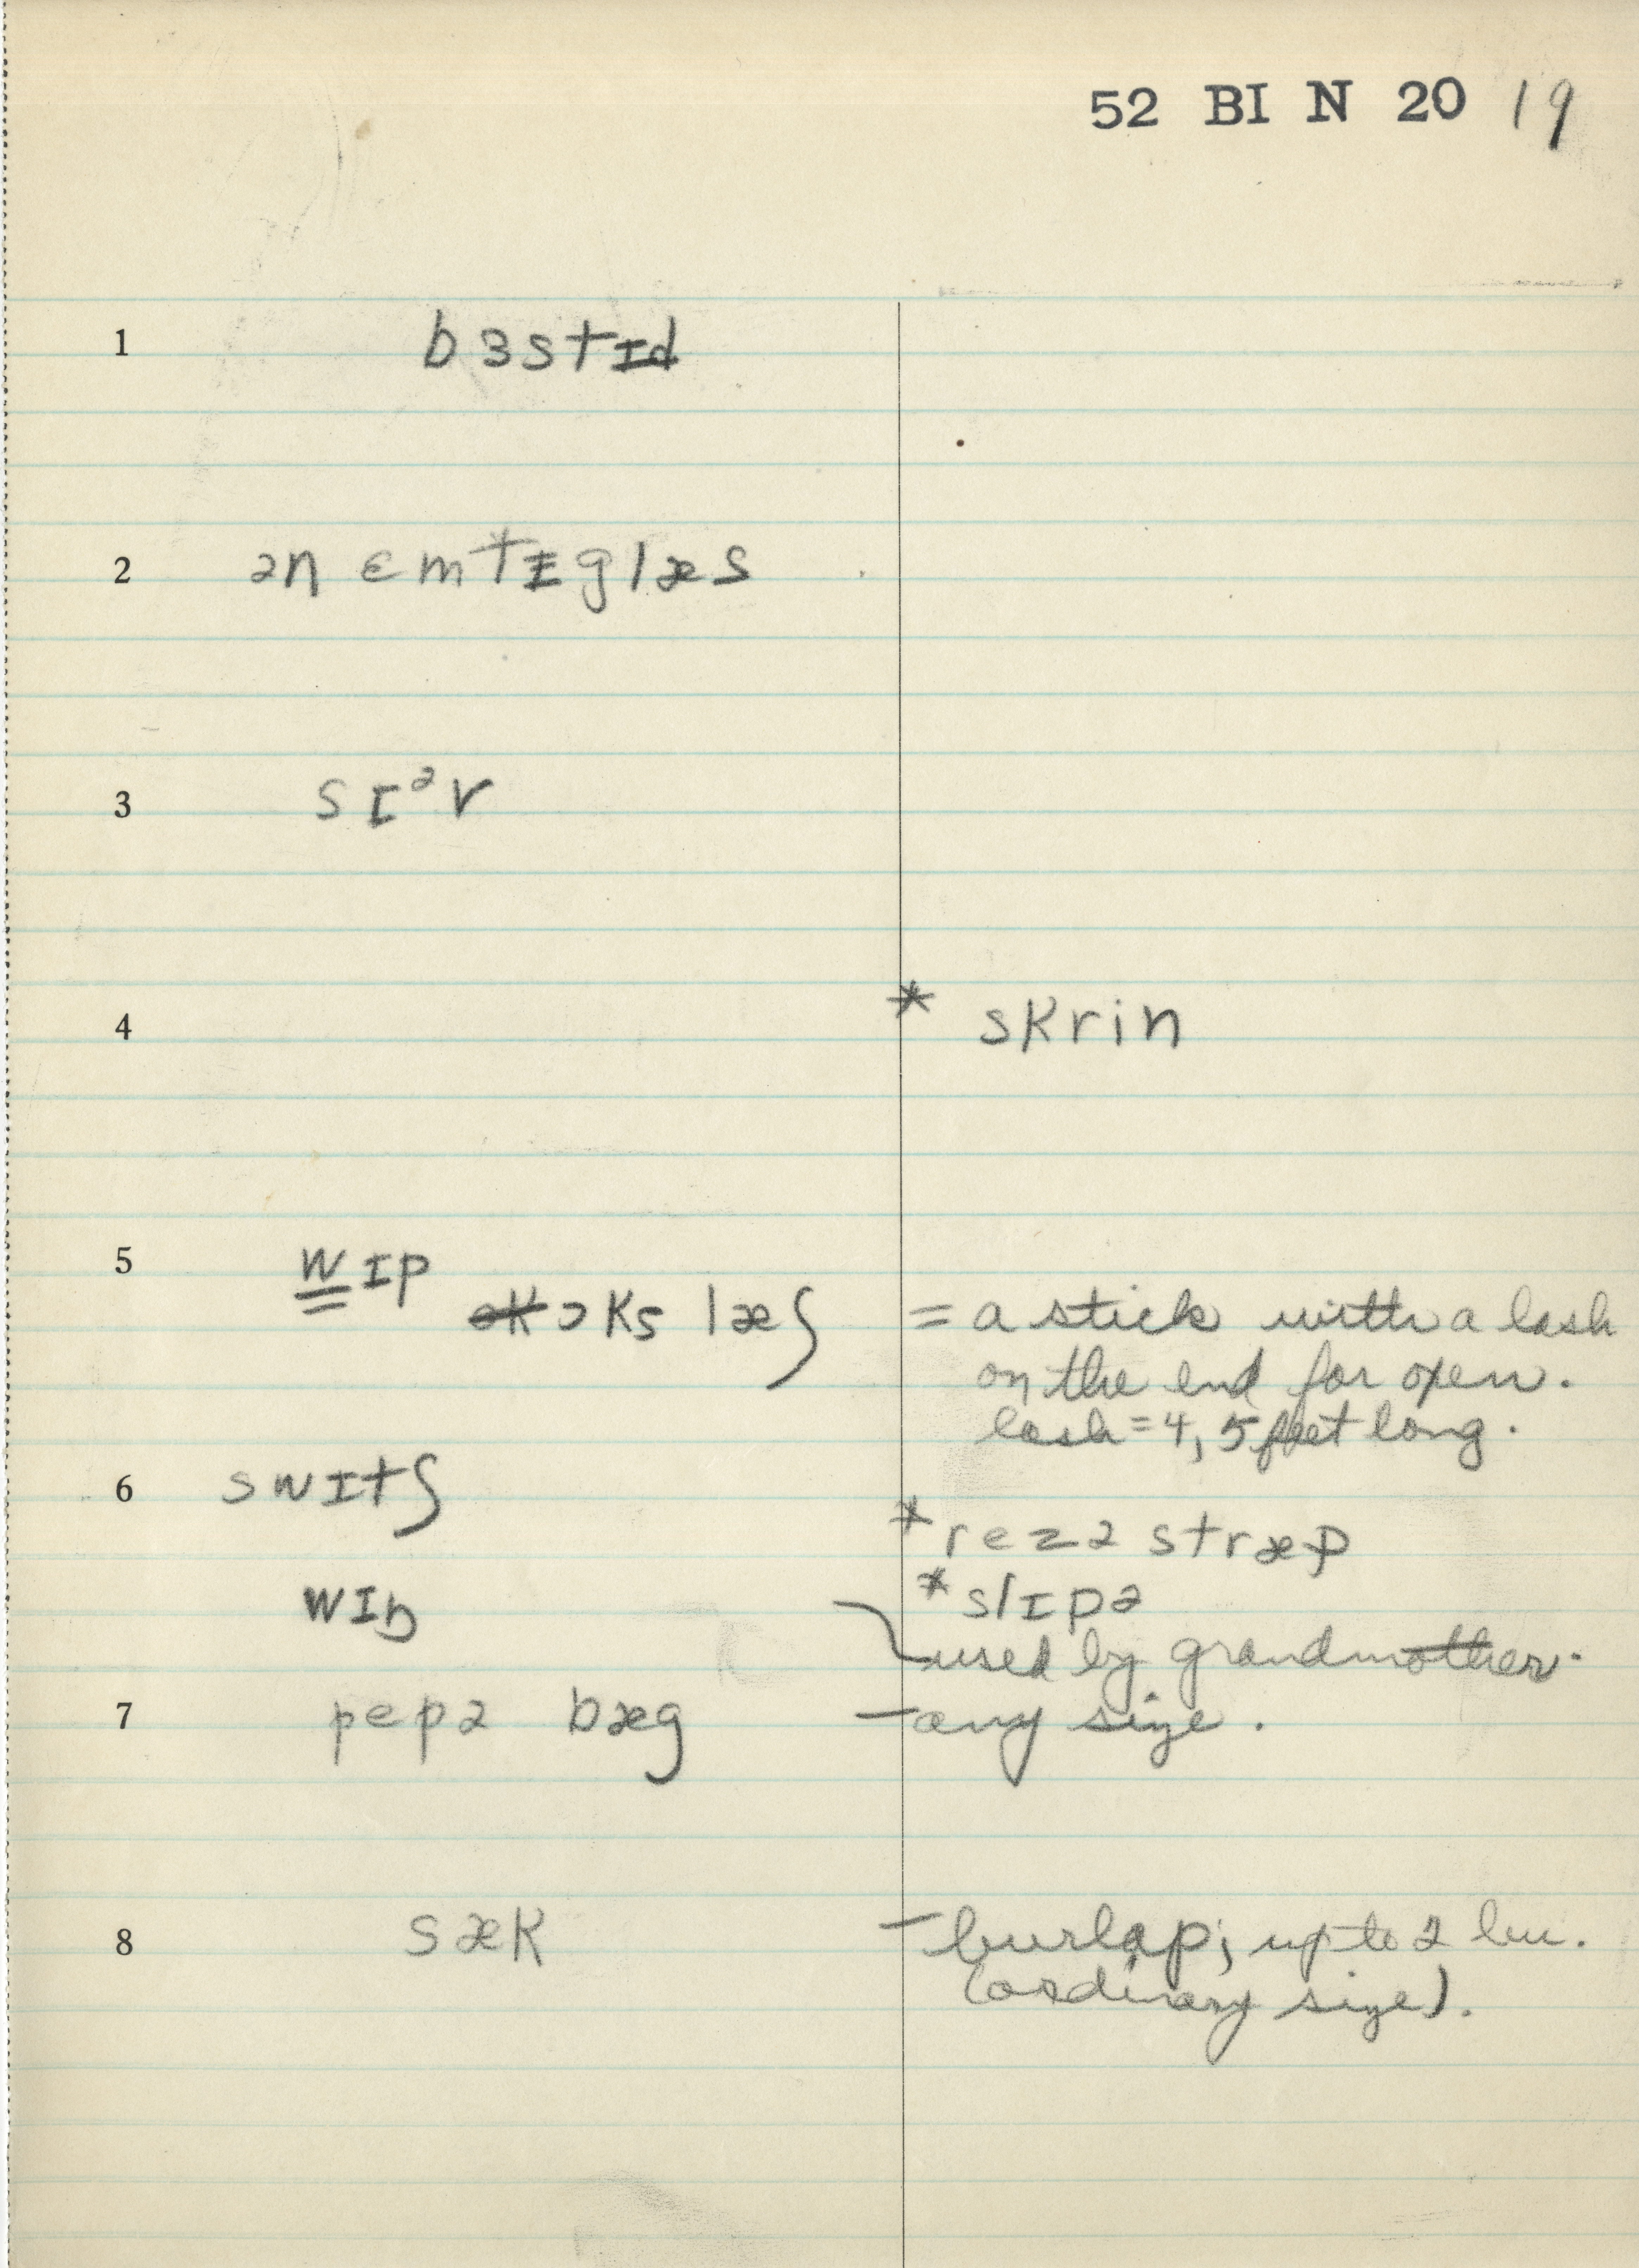 52 BI N 20 19
1 bɜstɨd
2 ən ɛmtɨglæs
3 sɪᵊv
4 * skrin
5 wɪp
ɔks læʃ = a stick with a lash
on the end for oxen.
lash = 4, 5 feet long.
6 swɪtʃ
* rezə stræp
wɪp
* slɪpə
used by grandmother.
7 pepə bæg – any size.
8 sæk – burlap; up to 2 bu.
(ordinary size).